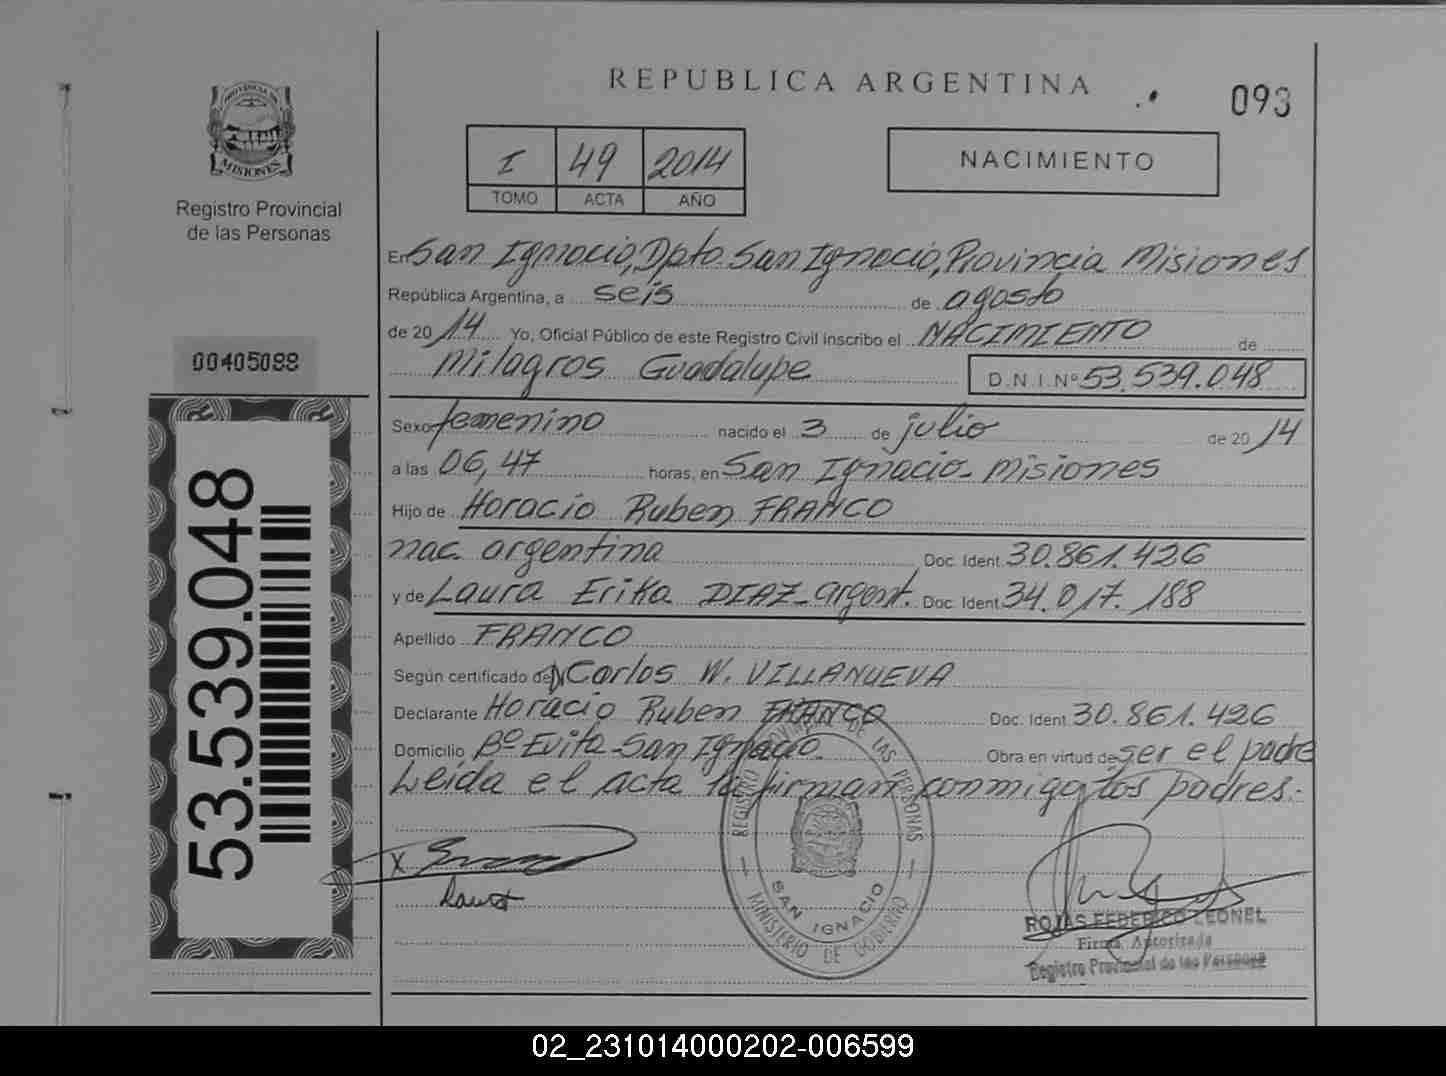 REPUBLICA ARGENTINA
093
PROVINCIA DE
MISIONES
Registro Provincial
de las Personas
I 49 2014
TOMO ACTA AÑO
NACIMIENTO
En San Ignacio, Dpto. San Ignacio, Provincia Misiones
República Argentina, a seis de agosto
de 2014 Yo, Oficial Público de este Registro Civil inscribo el NACIMIENTO de
Milagros Guadalupe D.N.I.Nº 53.539.048
00405088
53.539.048
Sexo femenino nacido el 3 de julio de 2014
a las 06,47 horas, en San Ignacio - Misiones
Hijo de Horacio Ruben FRANCO
nac. argentina Doc. Ident. 30.861.426
y de Laura Erika DIAZ - argent. Doc. Ident. 34.017.188
Apellido FRANCO
Según certificado de Carlos W. VILLANUEVA
Declarante Horacio Ruben FRANCO Doc. Ident. 30.861.426
Domicilio Bº Evita - San Ignacio. Obra en virtud de ser el padre
Leida el acta la firman conmigo los padres.-
REGISTRO PROVINCIAL DE LAS PERSONAS
SAN IGNACIO
MINISTERIO DE GOBIERNO
X
ROJAS FEDERICO LEONEL
Firma Autorizada
Registro Provincial de las Personas
02_231014000202-006599